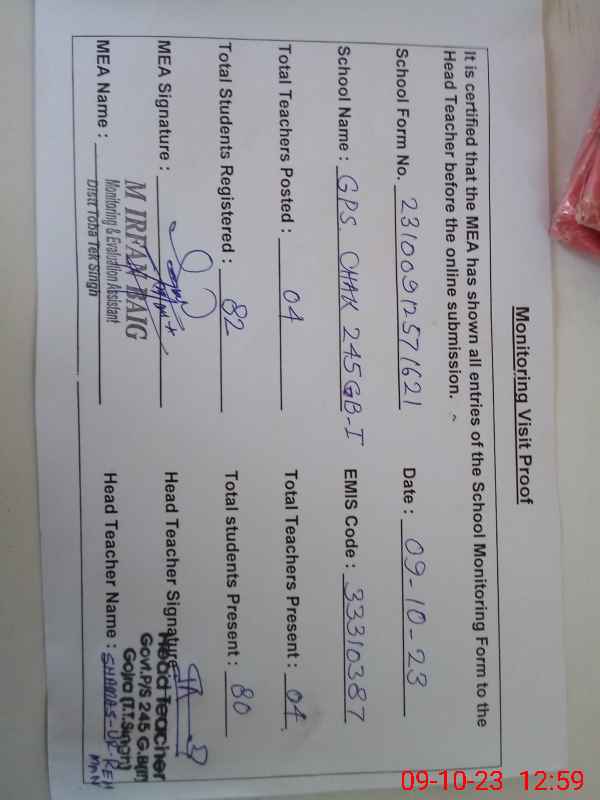 Monitoring Visit Proof
It is certified that the MEA has shown all entries of the School Monitoring Form to the
Head Teacher before the online submission.
School Form No. 231009125716 21 Date : 09-10-23
School Name : GPS CHAK 245GB-I EMIS Code : 33310387
Total Teachers Posted : 04 Total Teachers Present : 04
Total Students Registered : 82 Total students Present : 80
MEA Signature : Head Teacher Signature
M IRFAN BAIG
Monitoring & Evaluation Assistant
Distt Toba Tek Singh
Head Teacher
Govt.P/S 245 G.B(I)
Gojra (T.T.Singh)
MEA Name : Head Teacher Name : SHAMAS-UR-REH
MAN
09-10-23 12:59